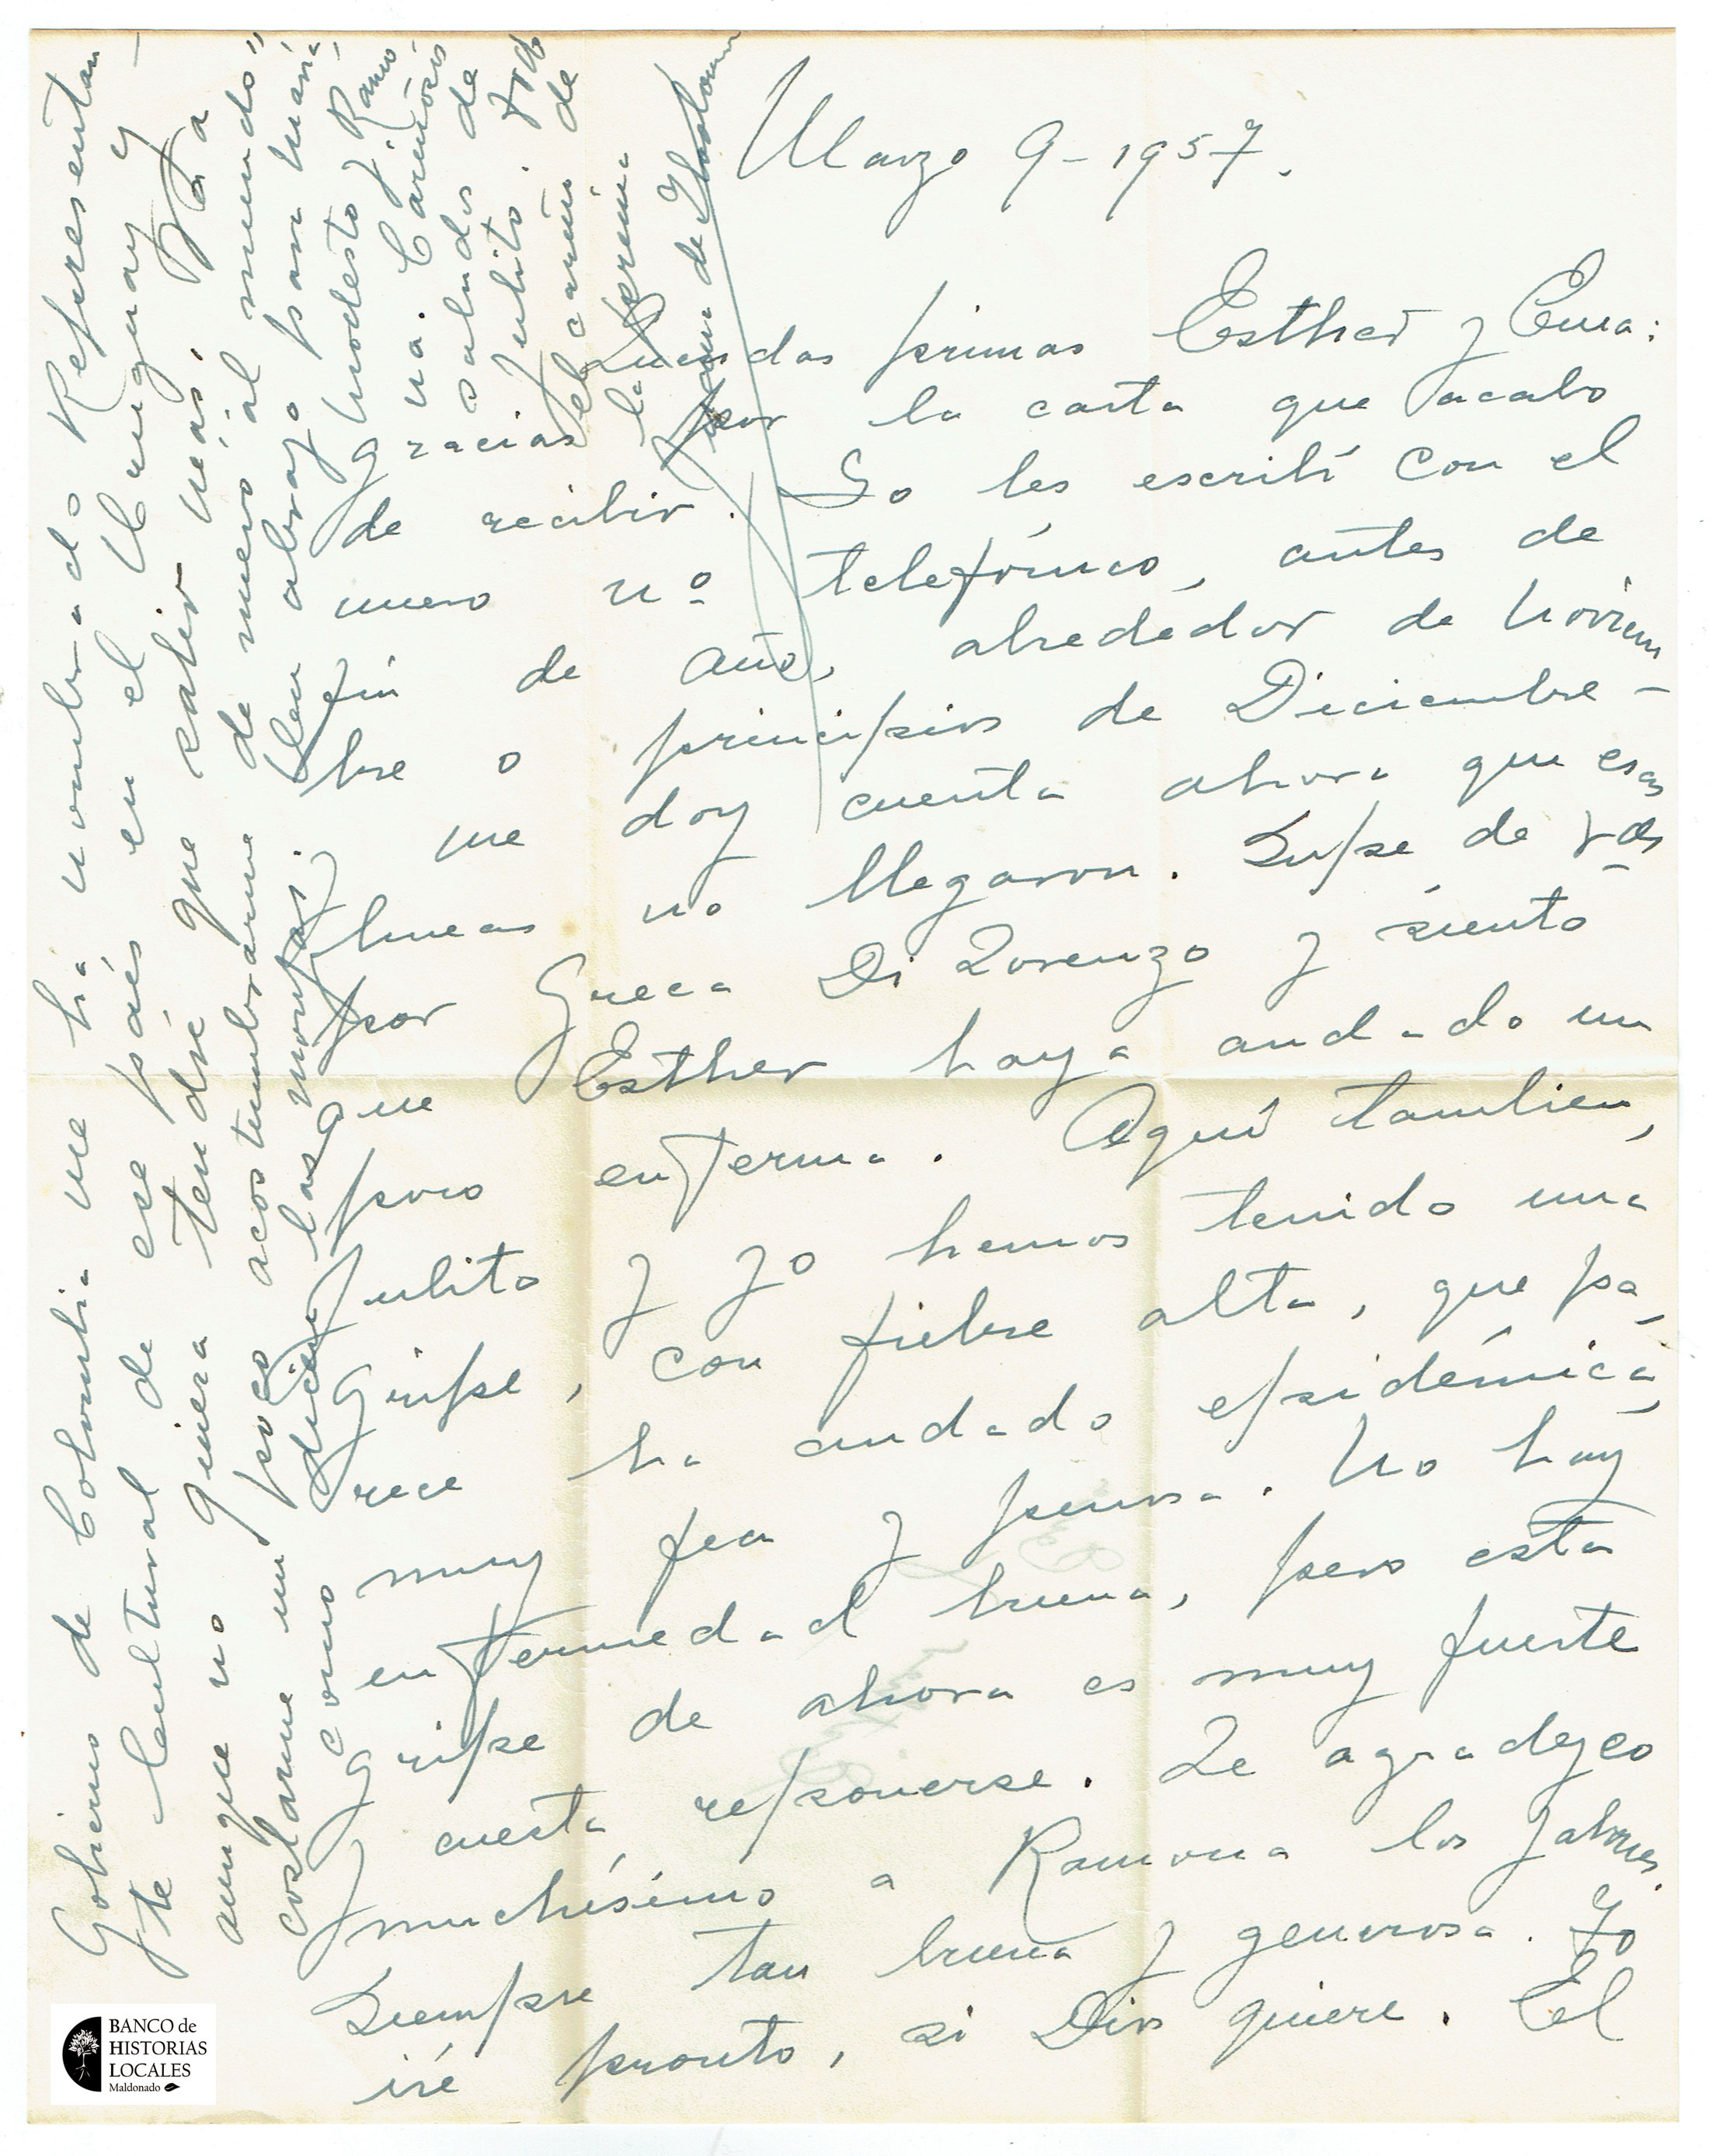 Marzo 9-1957.
Queridas primas Esther y Ema:
gracias por la carta que acabo
de recibir. Yo les escribí con el
nuevo nº telefónico, antes de
fin de año, alrededor de Noviem
bre o principios de Diciembre –
y me doy cuenta ahora que esas
líneas no llegaron. Supe de Vds
por Greca Di Lorenzo y siento
que Esther haya andado un
poco enferma. Aquí tambien,
Julito y yo hemos tenido una
gripe, con fiebre alta, que pa-
rece ha andado epidémica,
muy fea y penosa. No hay
enfermedad buena, pero esta
gripe de ahora es muy fuerte
y cuesta reponerse. Le agradezco
muchísimo a Ramona los jabones.
Siempre tan buena y generosa. Yo
iré pronto, si Dios quiere. El
Gobierno de Colombia me ha nombrado Representan
te Cultural de ese país en el Uruguay y –
aunque no quiera tendré que salir más. Va a
costarme un poco acostumbrarme de nuevo "al mundo"
como dicen las monjas. Un abrazo para María
Modesto y Ramo
na. Cariñosos
saludos de
Julito. Todo
el cariño de
la prima
Juana de Ibarbourou
BANCO de
HISTORIAS
LOCALES
Maldonado